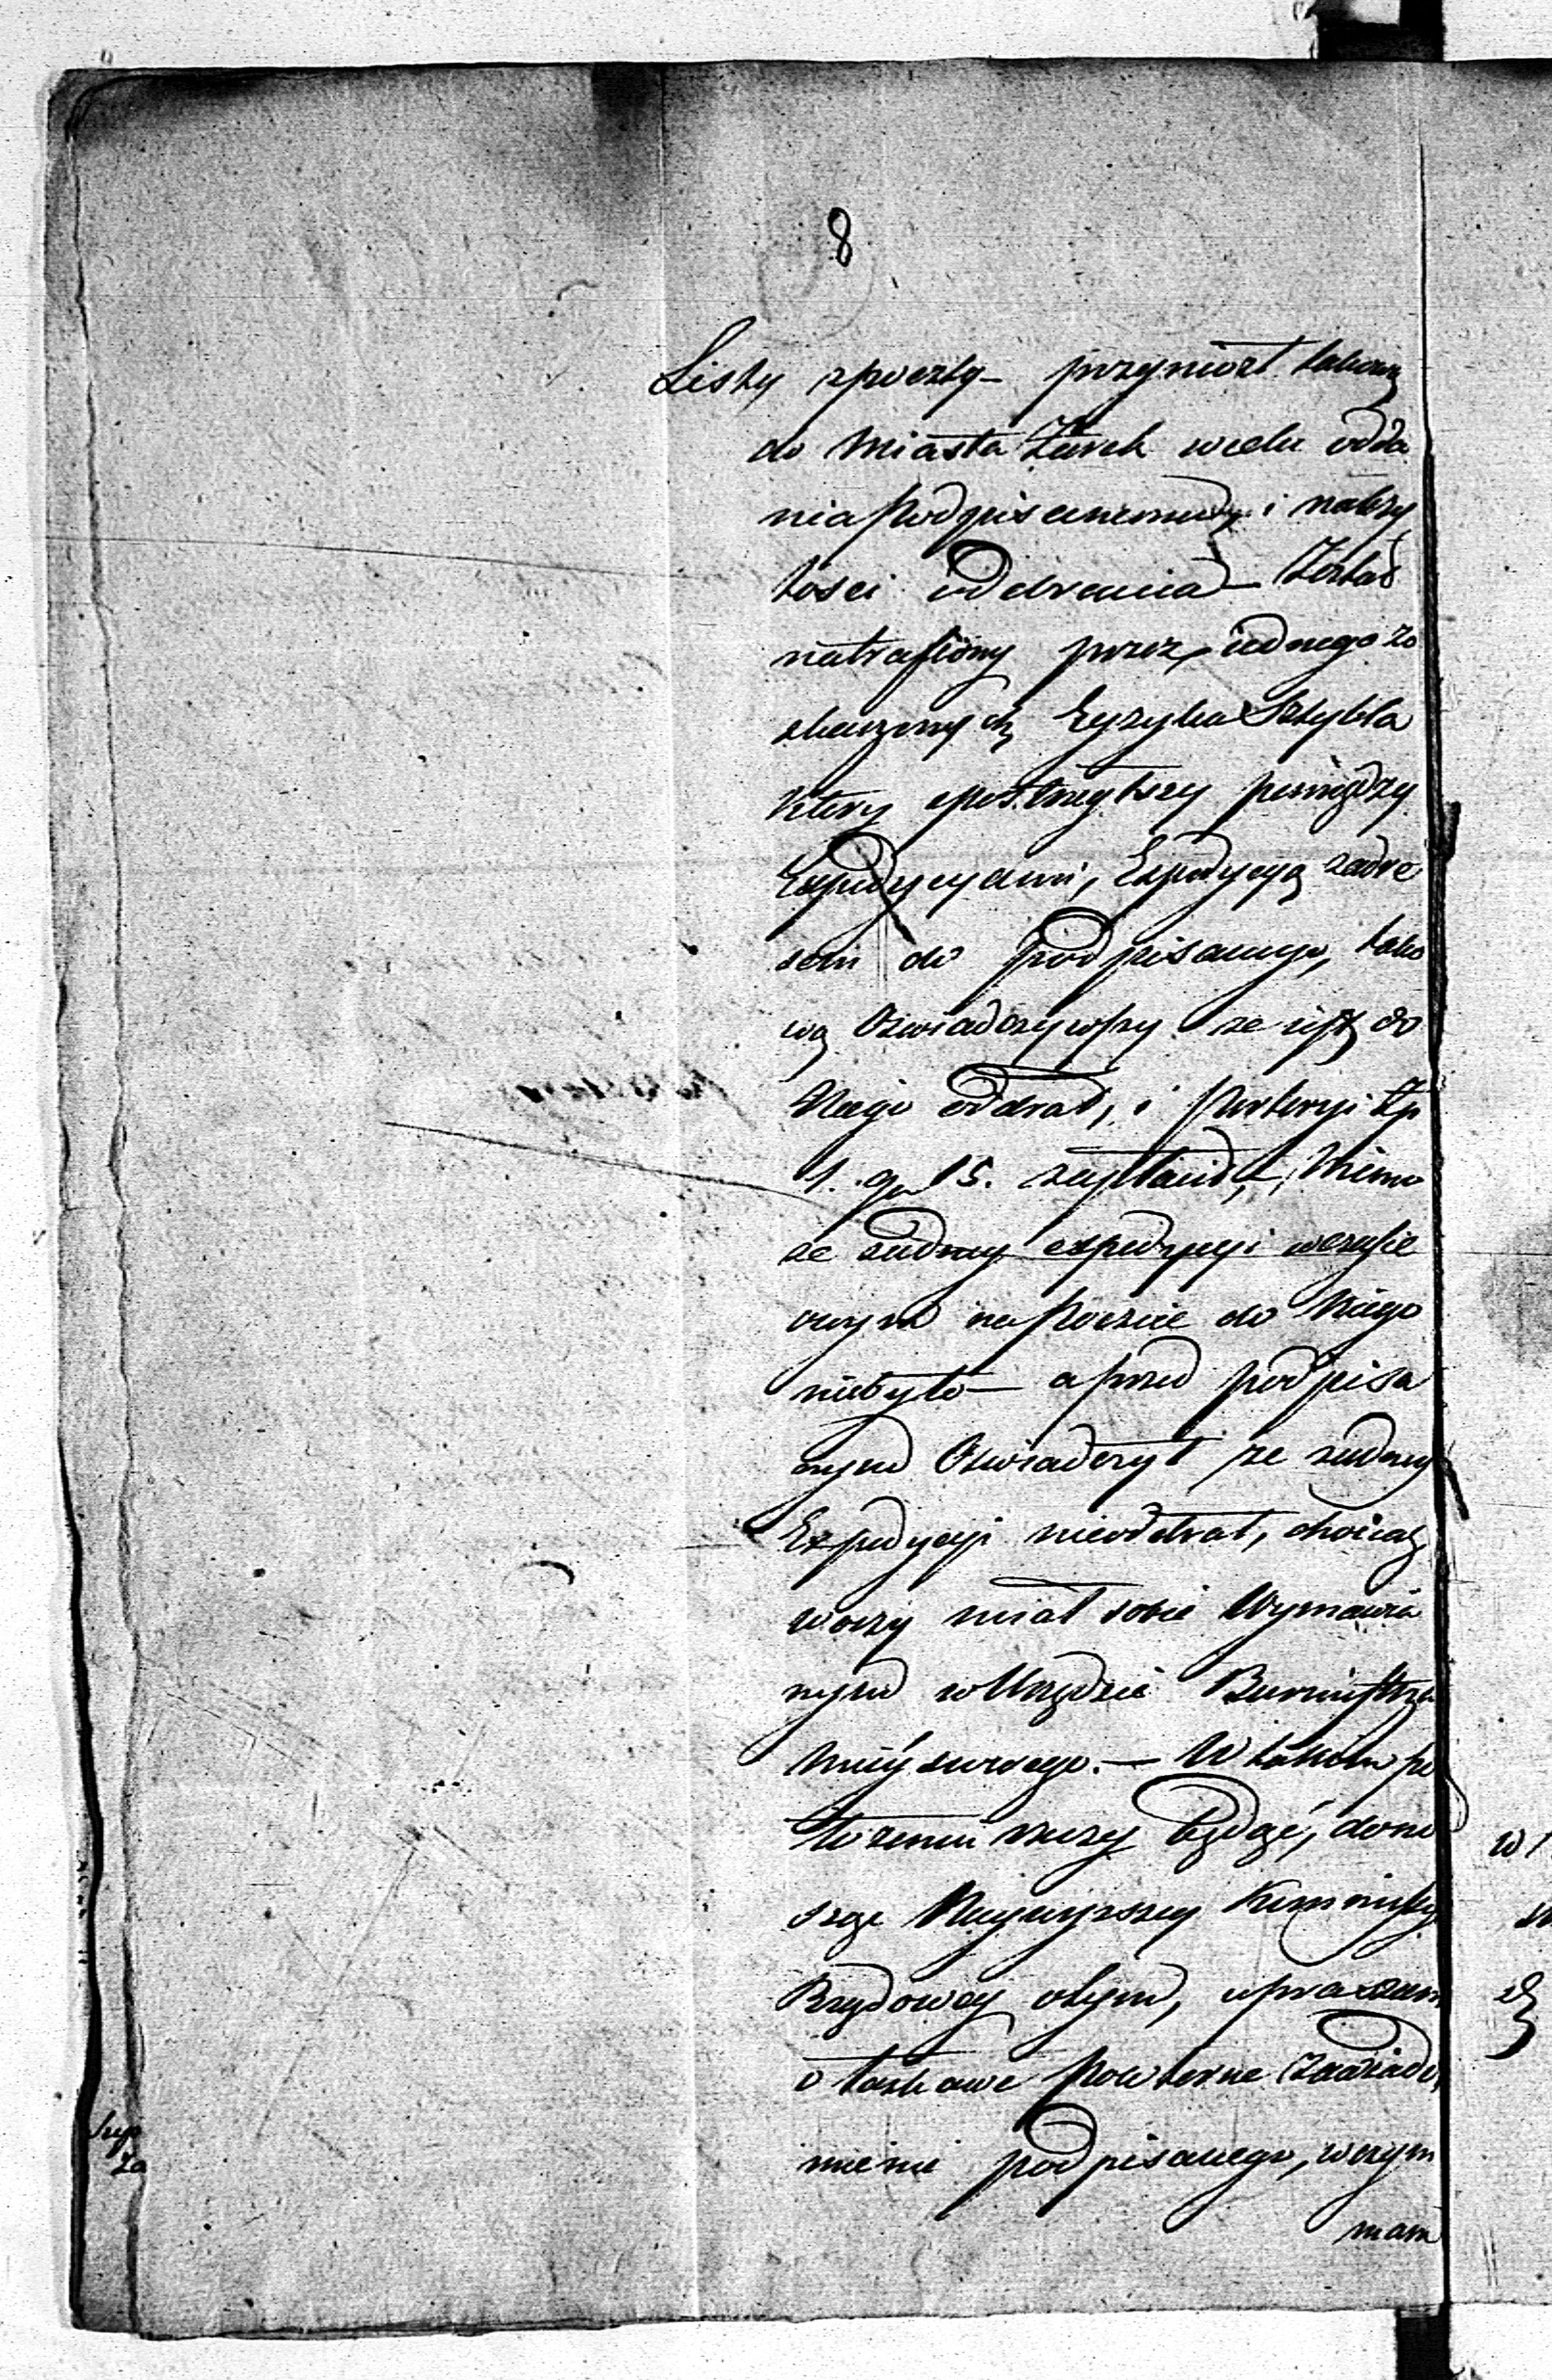 8
Listy zpoczty — przyniosł takową
do Miasta Żarek wcelu odda
nia Podpisanemu, i należy
tości odebrania — Został
natrafiony przez jednego zo
skarzonych Eyzyka Sztybla
który spostrzegłszy pomiędzy
Expedycyami, Expedycyą zadre
sem do podpisanego, tako
wą Oswiadczywszy ze iest do
Niego odebrał, i Portoryi Zp
1. gr 15. zapłacił, Mimo
ze żadney expedycyi wczasie
owym na Poczcie do Niego
niebyło — a przed podpisa
nym Oswiadczył ze żadney
Expedycyi nieodebrał, chociaż
woczy miał sobie Wymawia
nym w Urzędzie Burmistrza
Mieyscowego. — W takim po
łożeniu rzeczy będąc, dono
sząc Naywyższey Kommissyi
Rządowey otym, upraszam
o łaskawe Powtorne Zawiado
mienie podpisanego, wczym
mam